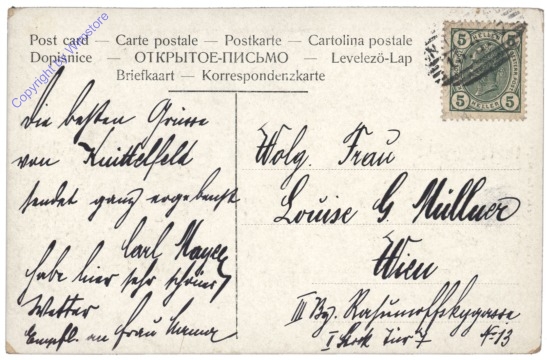 Post card — Carte postale — Postkarte — Cartolina postale
Dopisnice — ОТКРЫТОЕ-ПИСЬМО — Levelező-Lap
Briefkaart — Korrespondenzkarte
5 HELLER 5
5 HELLER 5
Die besten Grüsse
von Knittelfeld
sendet ganz ergebenst
Carl Mayer
habe hier sehr schönes
Wetter
Empfl. an Frau Mama
Wolg. Frau
Louise G. Müllner
Wien
III Bz. Rasumoffskygasse
I Stock Tür 7 No 13
Copyright by